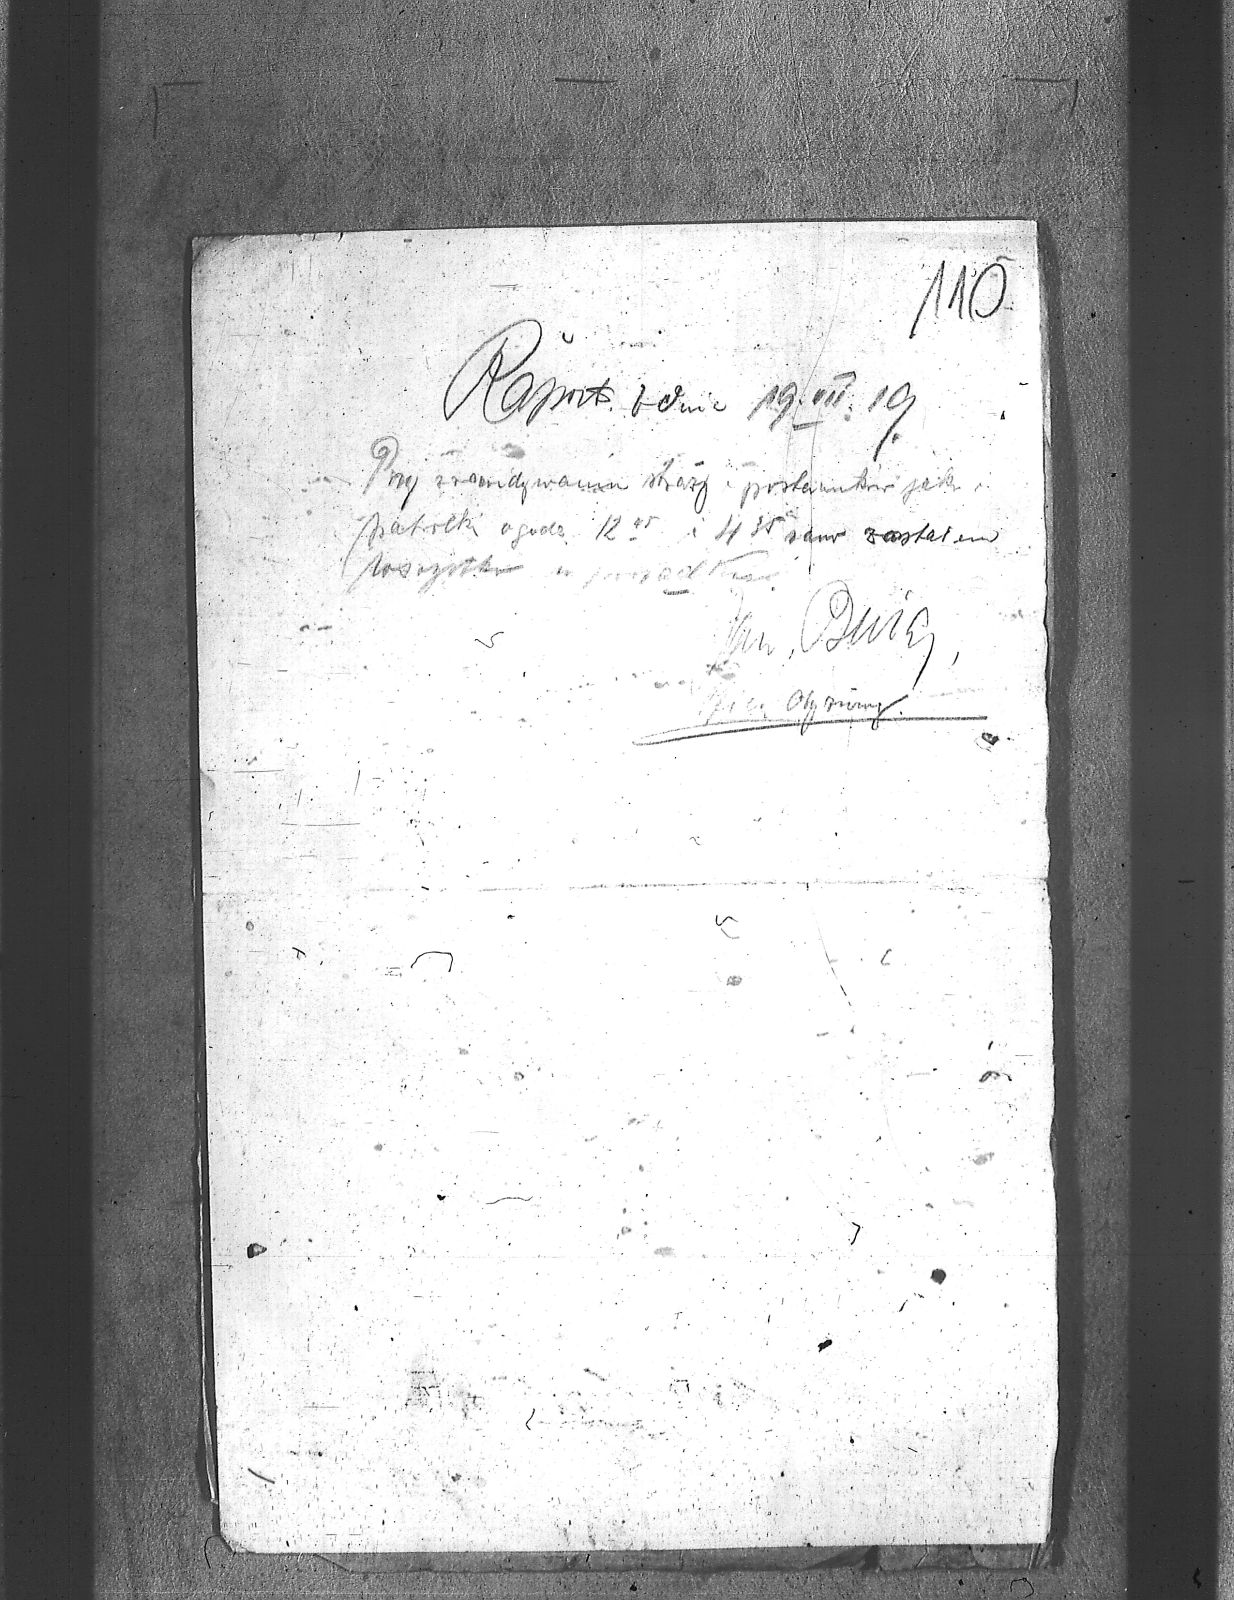 110
Raport z dnia 19.VII.19.
Przy zrewidywaniu straży i posterunków jak i
patrolki o godz. 12 05 i 4 35 rano zastałem
wszystko w porządku.
Jan